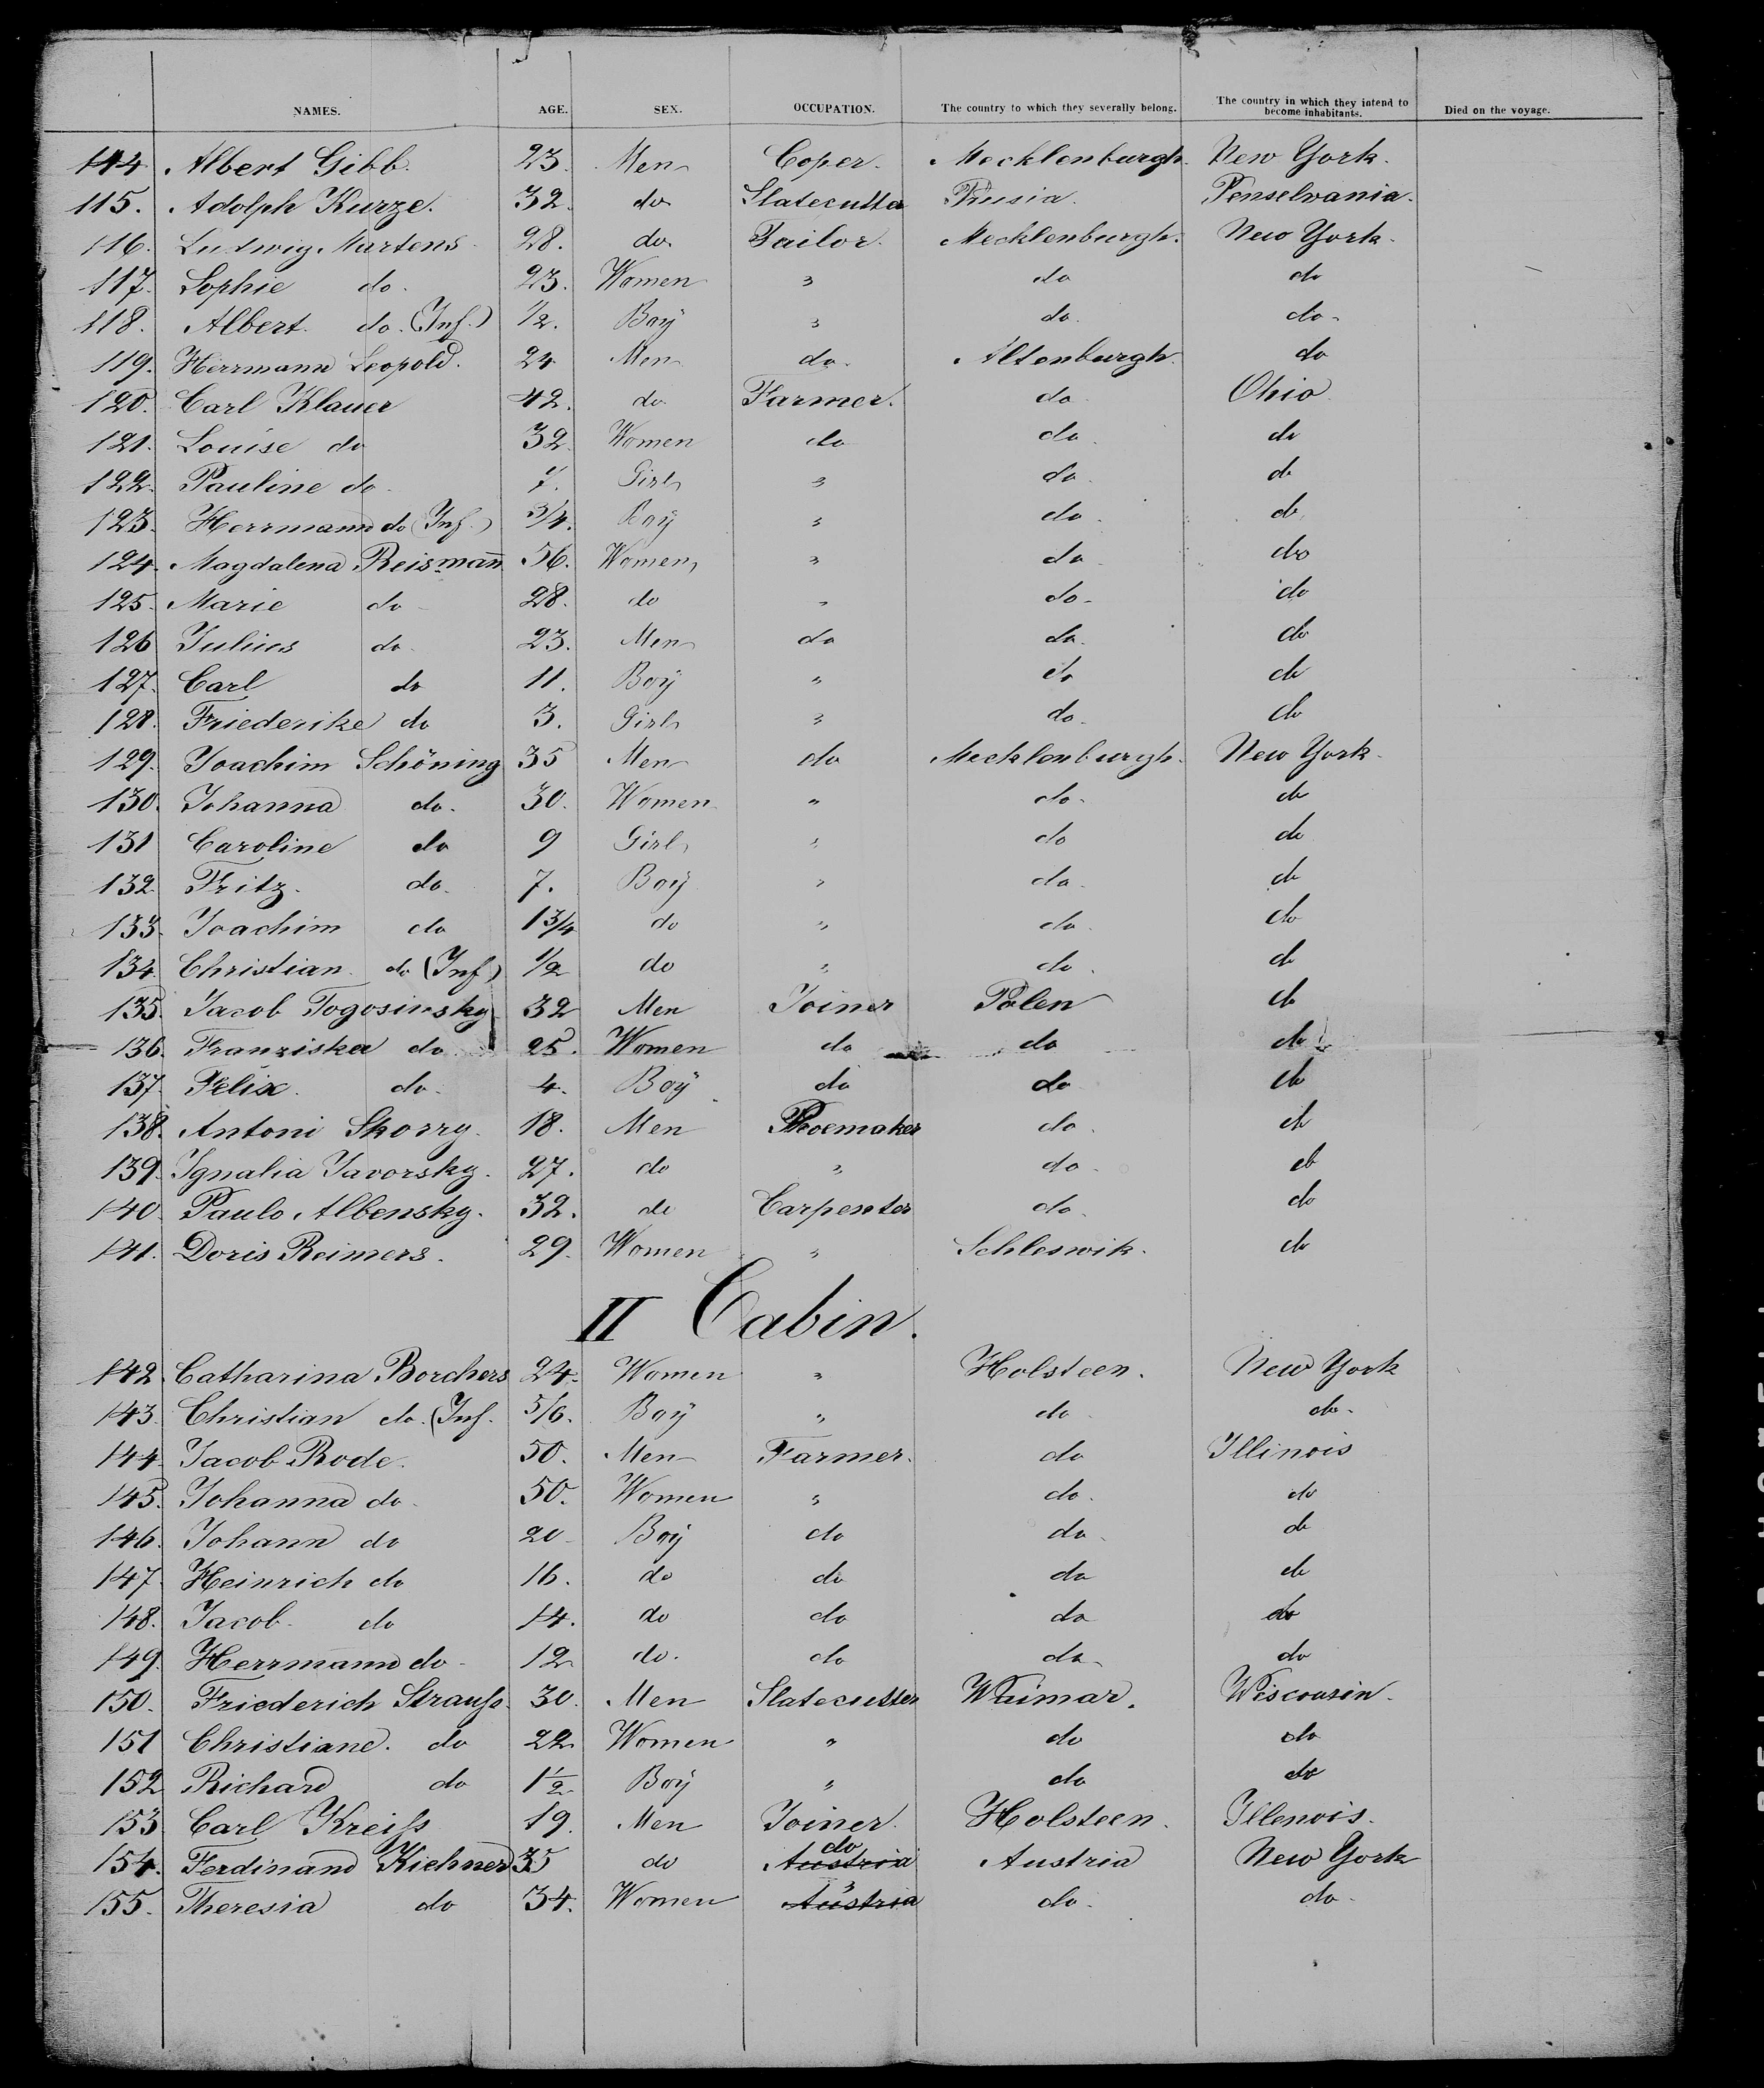 NAMES. AGE. SEX. OCCUPATION. The country to which they severally belong. The country in which they intend to become inhabitants. Died on the voyage.
114 Albert Gibb. 23. Men Coper. Mecklenburgh. New York.
115. Adolph Kurze. 32. do Slatecutter Prusia. Penselvania.
116. Ludwig Martens 28. do. Tailor. Mecklenburgh. New York.
117. Sophie do. 23. Women " do do
118. Albert. do. (Inf.) 1/2. Boÿ " do. do.
119. Herrmann Leopold. 24 Men do. Altenburgh. do
120. Carl Klauer 42. do. Farmer. do Ohio
121. Louise do 32 Women do do. do
122. Pauline do. 7. Girl " do. do
123. Herrmann do (Inf.) 3/4. Boÿ " do. do.
124. Magdalena Reismann 56. Women " do. do
125. Marie do 28. do " do. do
126 Julius do. 23. Men do do. do
127. Carl do 11. Boÿ " do do
128. Friederike do 3. Girl " do. do
129. Joachim Schöning 35 Men do Mecklenburgh. New York.
130. Johanna do. 30. Women " do. do
131 Caroline do 9 Girl " do do
132. Fritz. do. 7. Boÿ " do. do
133. Joachim do 1 3/4 do " do. do
134. Christian. do (Inf) 1/2 do " do. do
135. Jacob Togosinsky 32 Men Joiner Polen do
136. Franziska do. 25. Women do do do
137. Felix. do. 4. Boÿ do do do
138. Antoni Skorry. 18. Men Shoemaker do. do
139. Ignalia Javorsky. 27. do " do. do
140. Paulo Albensky. 32. do Carpenter do. do
141. Doris Reimers. 29. Women " Schleswik. do
II Cabin.
142. Catharina Borchers 24. Women " Holsteen. New York
143. Christian do. (Inf. 5/6. Boÿ " do do.
144. Jacob Rode. 50. Men Farmer. do Illinois
145. Johanna do. 50. Women " do. do
146. Johann do 20 Boÿ do do. do
147. Heinrich do 16. do do do do
148. Jacob. do 14. do do do do
149. Herrmann do. 12 do. do do. do
150. Friederich Strauss. 30. Men Slatecutter Waimar. Wisconsin.
151 Christiane. do 22 Women " do do
152 Richard do 1 1/2 Boÿ " do do
153. Carl Kreiss 19. Men Joiner. Holsteen. Illenois.
154. Ferdinand Kichner 35 do Austria do Austria New York
155. Theresia do 34. Women Austria " do. do.